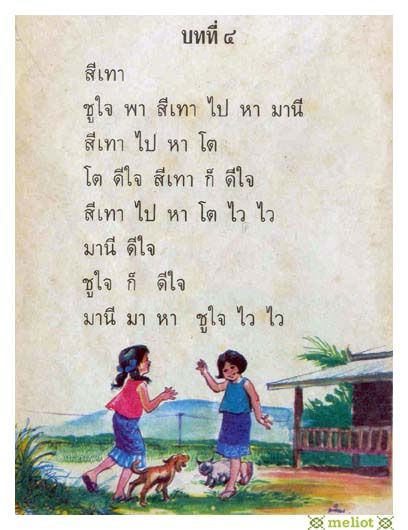 บทที่ ๔
สีเทา
ชูใจ พา สีเทา ไป หา มานี
สีเทา ไป หา โต
โต ดีใจ สีเทา ก็ ดีใจ
สีเทา ไป หา โต ไว ไว
มานี ดีใจ
ชูใจ ก็ ดีใจ
มานี มา หา ชูใจ ไว ไว
meliot